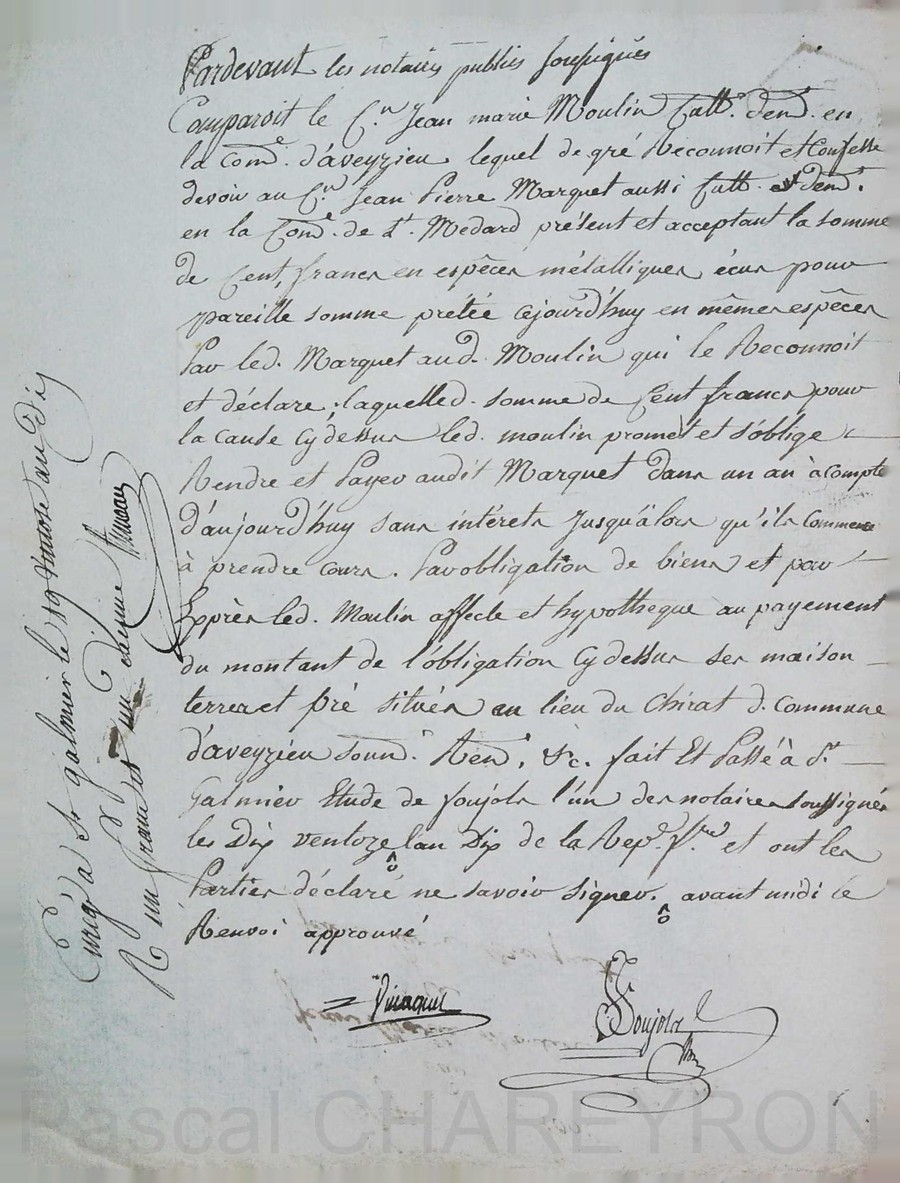 Pardevant les notaires publics soussignés
Comparoit le C.en Jean marie Moulin Cult.r dem.t en
la Com.e d'aveyzieu lequel de gré Reconnoit et Confesse
devoir au C.en Jean Pierre Marquet aussi Cult.r dem.t
en la Com.e de S.t Medard présent et acceptant la somme
de Cent francs en espèces métalliques écus pour
pareille somme prétée cejourd'huy en mêmes espèces
Par led. Marquet aud. Moulin qui le Reconnoit
et déclare, laquelle d. somme de Cent francs pour
la cause cy dessus led. moulin promet et s'oblige
Rendre et Payer audit Marquet dans un an à compte
d'aujourd'huy sans intérets Jusqu'àlors qu'ils Commence
à prendre cours. Par obligation de biens et par
Exprès led. Moulin affecte et hypotheque au payement
du montant de l'obligation Cy dessus ses maison
terres et pré situés au lieu du Chirat d. Commune
d'aveyzieu soum.n Ren.n &c. fait Et Passé à S.t
Galmier Etude de Soujols l'un des notaires soussignés
les Dix ventoze lan Dix de la Rep.e f.se et ont les
Parties déclaré ne savoir signer. avant midi ce
Renvoi approuvé
Soujols
Enreg.é a St galmier le 19 Vintose an Dix
R un franc et un decime
Pascal CHAREYRON